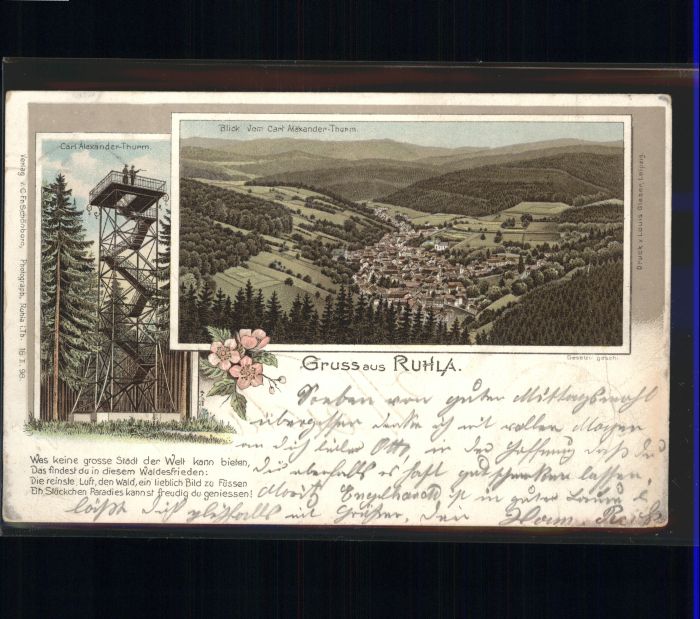 Carl Alexander-Thurm.
Blick Vom Carl Alexander-Thurm.
Verlag v. C. Fr. Schönborn, Photograph, Ruhla i. Th. 18
Druck v. Louis Glaser, Leipzig.
Gesetzl. gesch.
Gruss aus RUHLA.
Was keine grosse Stadt der Welt kann bieten,
Das findest du in diesem Waldesfrieden:
Die reinste Luft, den Wald, ein lieblich Bild zu Füssen
Ein Stückchen Paradies kannst freudig du geniessen!
Soeben vom guten Mittagsmahl
denke ich mit vollem Magen
an dich lieber Otto, in der Hoffnung daß du
gutschmecken lassen,
Moritz Engelhardt ist in guter Laune &
läßt dich gleichfalls mit Grüßen, Dein Herm.